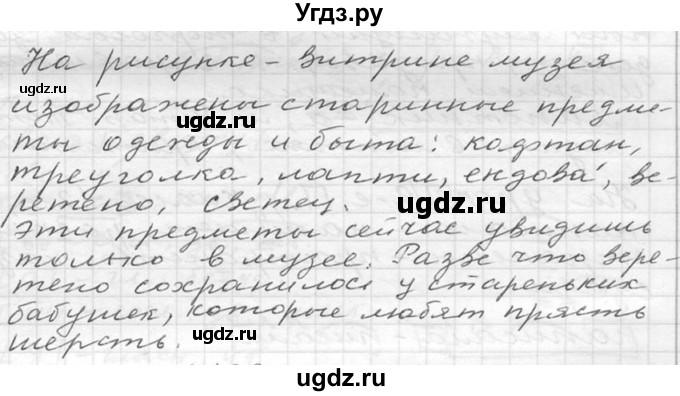 Угдз.ру
На рисунке - витрине музея
изображены старинные предме-
ты одежды и быта: кафтан,
треуголка, лапти, ендова́, ве-
ретено, светец.
Эти предметы сейчас увидишь
только в музее. Разве что вере-
тено сохранилось у стареньких
бабушек, которые любят прясть
шерсть.
ugdz.ru
ugdz.ru
ugdz.ru
ugdz.ru
ugdz.ru
ugdz.ru